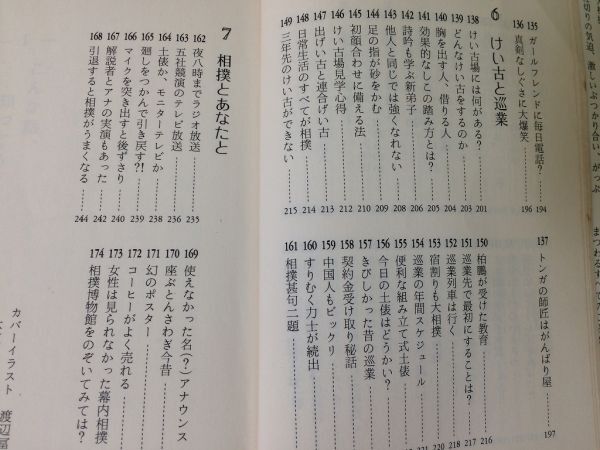 135 ガールフレンドに毎日電話? 194
136 真剣なしぐさに大爆笑 196
137 トンガの師匠はがんばり屋 197
6 けい古と巡業
138 けい古場には何がある? 201
139 どんなけい古をするのか 203
140 胸を出す人、借りる人 204
141 効果的なしこの踏み方とは? 205
142 詩吟も学ぶ新弟子 206
143 他人と同じでは強くなれない 208
144 足の指が砂をかむ 209
145 初顔合わせに備える法 210
146 けい古場見学心得 212
147 出げい古と連合げい古 213
148 日常生活のすべてが相撲 214
149 三年先のけい古ができない 215
150 柏鵬が受けた教育 216
151 巡業先で最初にすることは? 217
152 巡業列車は行く 218
153 宿割りも大相撲 220
154 巡業の年間スケジュール 221
155 便利な組み立て式土俵
156 今日の土俵はどうかい?
157 きびしかった昔の巡業
158 契約金受け取り秘話
159 中国人もビックリ
160 すりむく力士が続出
161 相撲甚句二題
7 相撲とあなたと
162 夜八時までラジオ放送 235
163 五社競演のテレビ放送 236
164 土俵か、モニターテレビか 238
165 廻しをつかんで引き戻す?! 239
166 マイクを突き出すと後ずさり 240
167 解説者とアナの実演もあった 242
168 引退すると相撲がうまくなる 244
169 使えなかった名(?)アナウンス
170 座ぶとんさわぎ今昔
171 幻のポスター
172 コーヒーがよく売れる
173 女性は見られなかった幕内相撲
174 相撲博物館をのぞいてみては?
カバーイラスト 渡辺冨